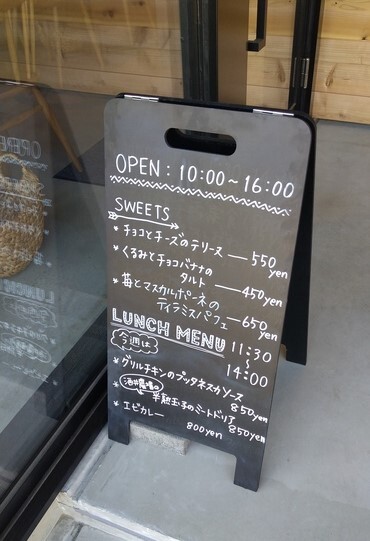 OPEN : 10:00~16:00
SWEETS
* チョコとチーズのテリーヌ — 550yen
* くるみとチョコバナナの
タルト — 450yen
* 苺とマスカルポーネの
ティラミスパフェ — 650yen
LUNCH MENU 11:30~14:00
今週は
* グリルチキンのプッタネスカソース
850yen
* 酒井農場の
半熟玉子のミートドリア
850yen
* エビカレー
800yen